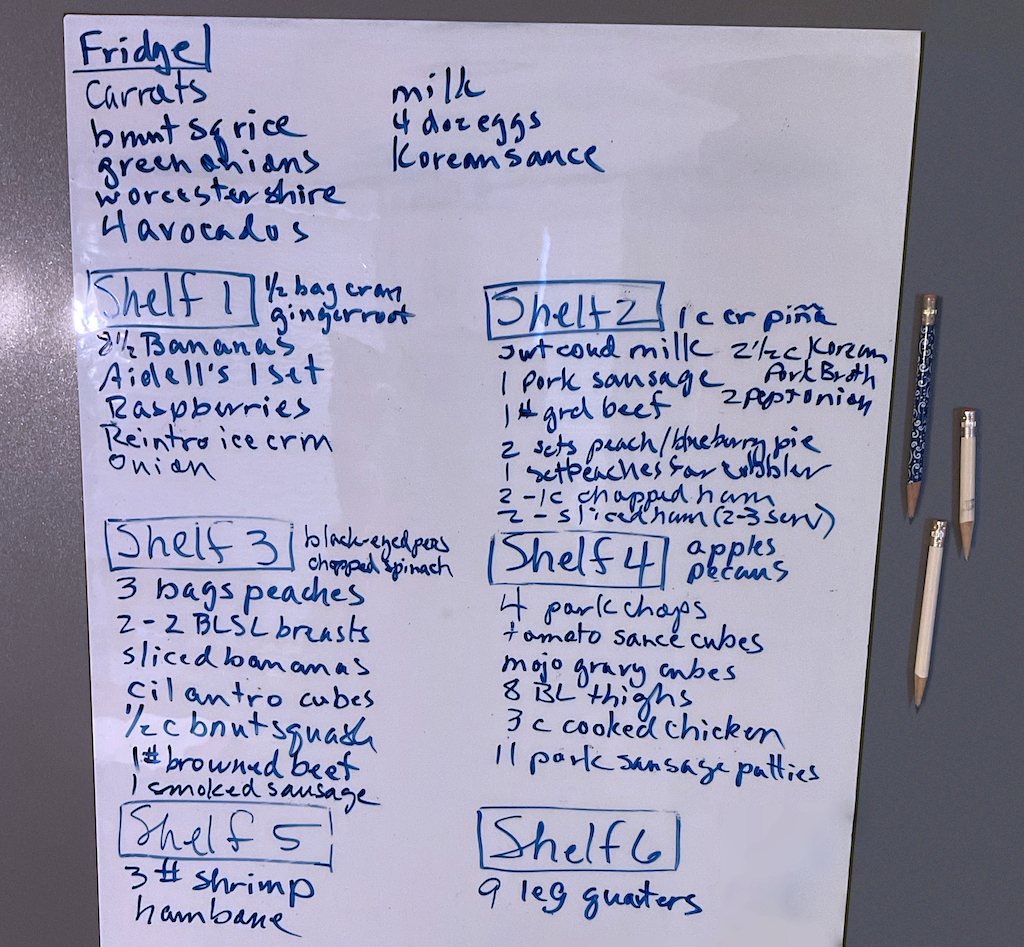 Fridge
Carrots
bnut sq rice
green onions
worcestershire
4 avocados
milk
4 doz eggs
Korean sauce
Shelf 1
1/2 bag cran
gingerroot
8 1/2 Bananas
Aidell's 1 set
Raspberries
Reintro ice crm
Onion
Shelf 2
1 c cr piña
swt cond milk
2 1/2 c Korean
Pork Broth
1 pork sausage
2 pept onion
1# grd beef
2 sets peach/blueberry pie
1 set peaches for cobbler
2 - 1c chopped ham
2 - sliced ham (2-3 serv)
Shelf 3
black-eyed peas
chopped spinach
3 bags peaches
2 - 2 BLSL breasts
sliced bananas
cilantro cubes
1/2 c bnut squash
1# browned beef
1 smoked sausage
Shelf 4
apples
pecans
4 pork chops
tomato sauce cubes
mojo gravy cubes
8 BL thighs
3 c cooked chicken
11 pork sausage patties
Shelf 5
3 # shrimp
hambone
Shelf 6
9 leg quarters